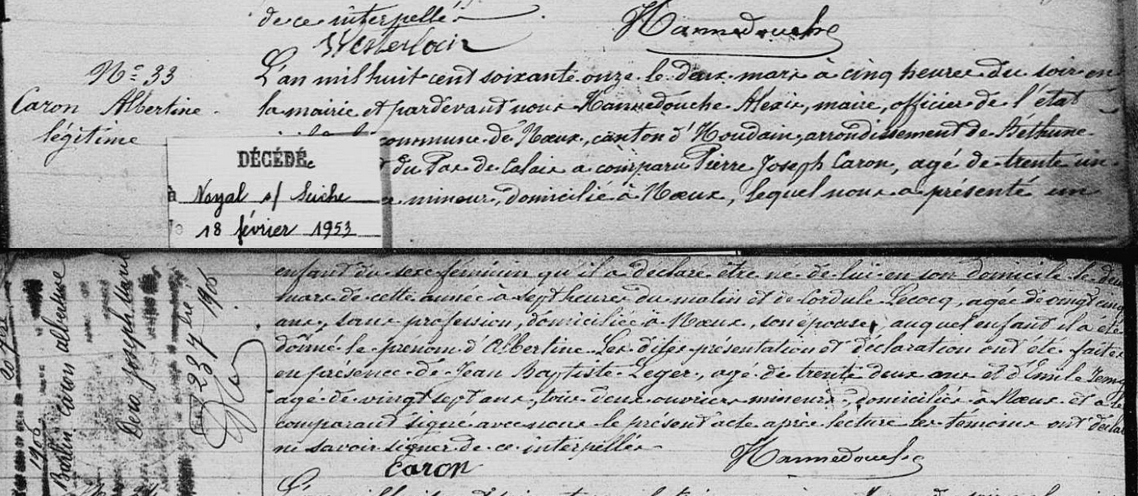 de ce interpellé
Westerloir
Hannedouche
Nº 33
Caron Albertine
légitime
L'an mil huit cent soixante onze le deux mars à cinq heures du soir en
la mairie et pardevant nous Hannedouche Alexis, maire, officier de l'état
commune de Nœux, canton d'Houdain, arrondissement de Béthune
du Pas de Calais a comparu Pierre Joseph Caron, agé de trente un
mineur, domicilié à Nœux, lequel nous a présenté un
DÉCÉDÉe
à Noyal s/ Seiche
18 février 1953
enfant du sexe féminin qu'il a déclaré être né de lui en son domicile le deux
mars de cette année à sept heures du matin et de Cordule Lecocq, agée de vingt cinq
ans, sans profession, domiciliée à Nœux, son épouse, auquel enfant il a été
donné le prénom d'Albertine. Les dites présentation et déclaration ont été faites
en présence de Jean Baptiste Leger, agé de trente deux ans et d'Émile
agé de vingt sept ans, tous deux ouvriers mineurs, domiciliés à Nœux et a le
comparant signé avec nous le présent acte après lecture les témoins ont déclaré
ne savoir signer de ce interpellés
Caron
Hannedouche
Caron albertine
Joseph
23 7bre 1905